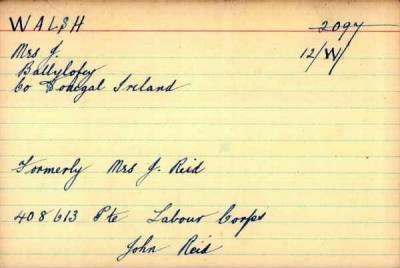 WALSH 2097
Mrs J. 12/W/
Ballylofey
Co Donegal Ireland
Formerly Mrs J. Reid
408613 Pte Labour Corps
John Reid